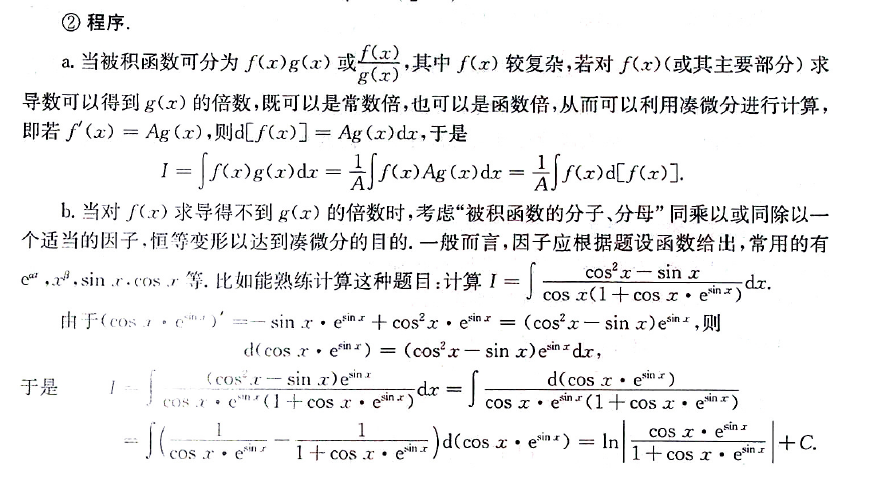 ② 程序.
a. 当被积函数可分为 f(x)g(x) 或 f(x)/g(x),其中 f(x) 较复杂,若对 f(x)(或其主要部分) 求
导数可以得到 g(x) 的倍数,既可以是常数倍,也可以是函数倍,从而可以利用凑微分进行计算,
即若 f′(x) = Ag(x),则d[f(x)] = Ag(x)dx,于是
I = ∫f(x)g(x)dx = 1/A ∫f(x)Ag(x)dx = 1/A ∫f(x)d[f(x)].
b. 当对 f(x) 求导得不到 g(x) 的倍数时,考虑“被积函数的分子、分母” 同乘以或同除以一
个适当的因子,恒等变形以达到凑微分的目的. 一般而言,因子应根据题设函数给出,常用的有
e^{αx},x^β,sin x,cos x 等. 比如能熟练计算这种题目:计算 I = ∫ (cos²x − sin x)/(cos x(1 + cos x • e^{sin x})) dx.
由于(cos x • e^{sin x})′ = − sin x • e^{sin x} + cos²x • e^{sin x} = (cos²x − sin x)e^{sin x},则
d(cos x • e^{sin x}) = (cos²x − sin x)e^{sin x}dx,
于是 I = ∫ (cos²x − sin x)e^{sin x}/(cos x • e^{sin x}(1 + cos x • e^{sin x})) dx = ∫ d(cos x • e^{sin x})/(cos x • e^{sin x}(1 + cos x • e^{sin x}))
= ∫(1/(cos x • e^{sin x}) − 1/(1 + cos x • e^{sin x}))d(cos x • e^{sin x}) = ln|cos x • e^{sin x}/(1 + cos x • e^{sin x})| + C.